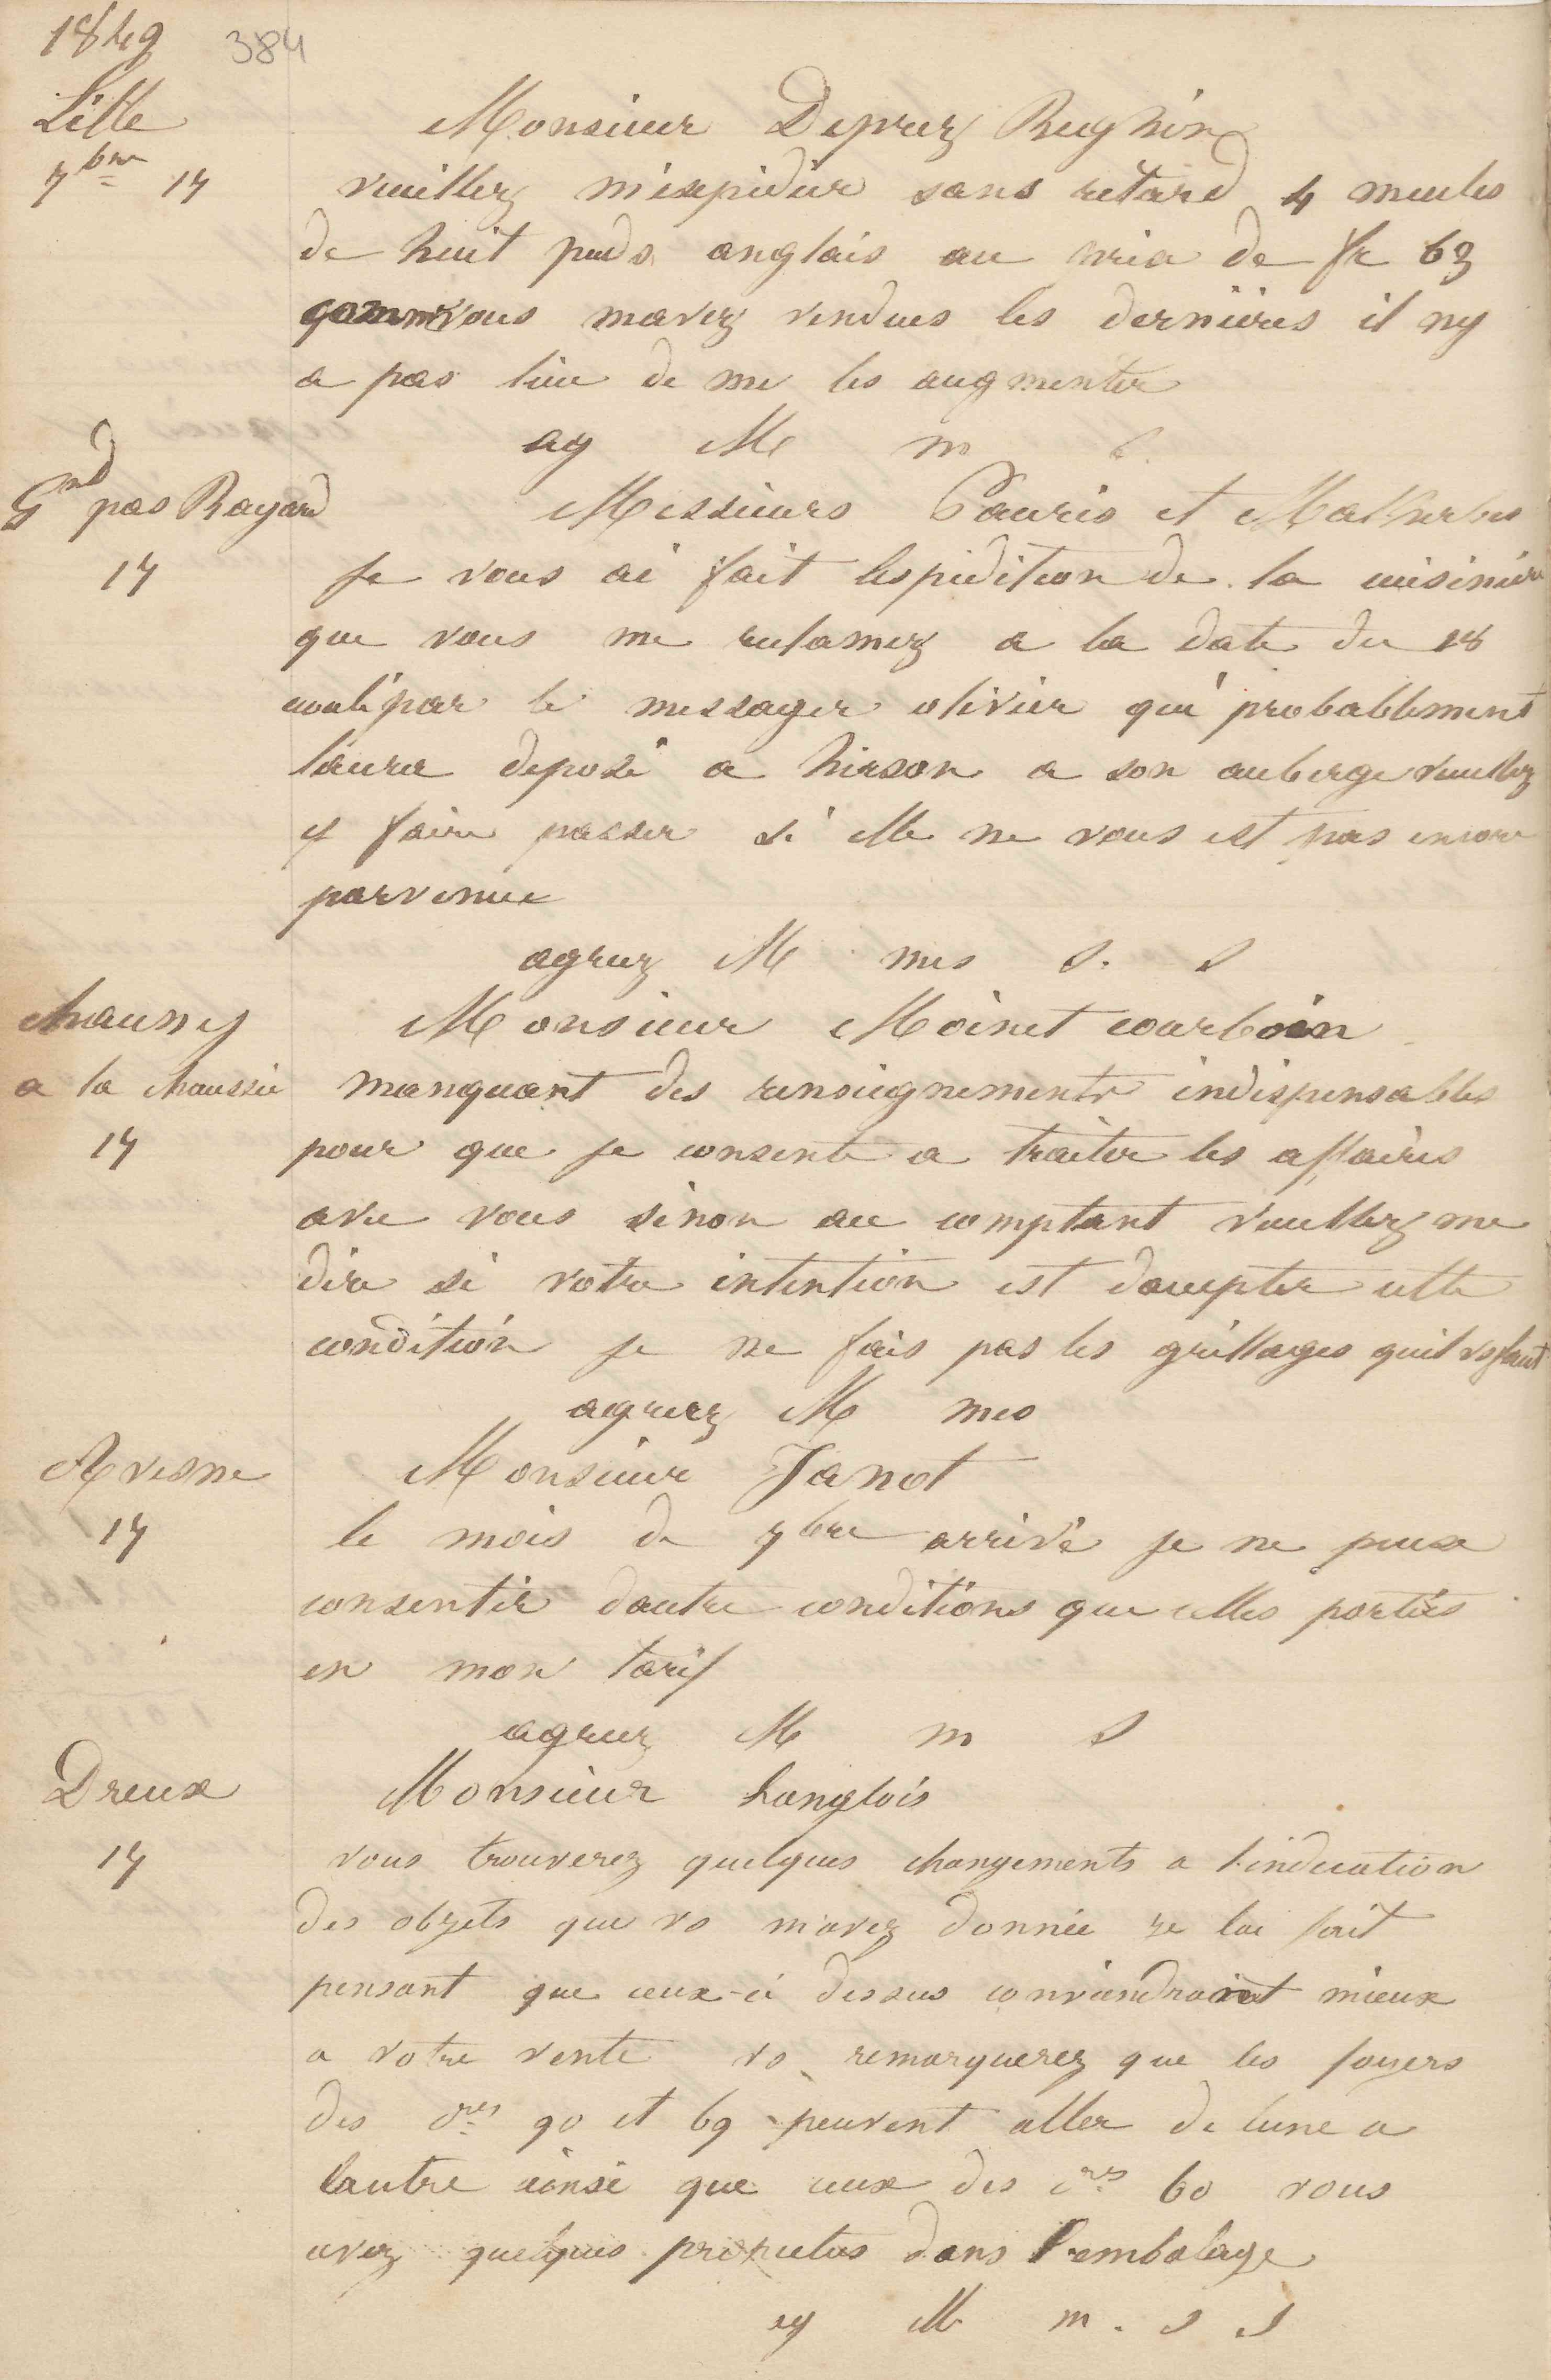 1849
384
Lille
7bre 17
Monsieur Deprez Reghin
veuillez m'expédier sans retard 4 meules
de huit pieds anglais au prix de fr 63
comme vous mavez vendues les dernières il ny
a pas lieu de me les augmenter
ag M m
Gnd pas Bayard
17
Messieurs et Malherbes
Je vous ai fait lespédition de la cuisinière
que vous me reclamez a la date du 18
coulé par le messager olivier qui probabblement
laura deposé a hirson a son auberge veuillez
y faire passer si elle ne vous est pas encore
parvenue
agreez M mes S. S
chauny
a la chaussée
17
Monsieur Moinet courboin
manquant des renseignements indispensables
pour que je consente a traiter les affaires
avec vous sinon au comptant veuillez me
dire si votre intention est daccepter cette
condition je ne fais pas les grillages quil vs faut
agreez M mes
Avesne
17
Monsieur Janot
le mois de 7bre arrivé je ne peux
consentir dautre conditions que celles portées
en mon tarif
agreez M m S
Dreux
17
Monsieur Langlois
vous trouverez quelques changements a l'indication
des objets que vs m'avez donnée je lai fait
pensant que ceux-ci dessus conviendraient mieux
a votre vente vs remarquerez que les foyers
des 90 et 69 peuvent aller de lune a
lautre ainsi que ceux des 60 vous
avez quelques prospectus dans l'embalage
ag M m. S S